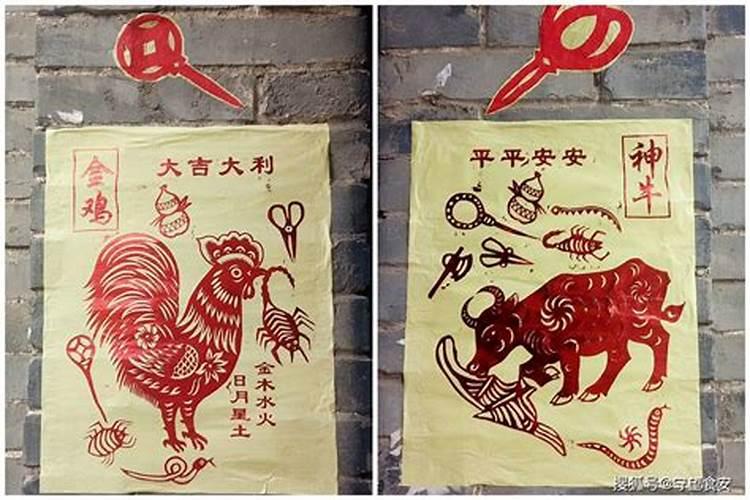 金鸡
大吉大利
金木水火
日月星土
平平安安
神牛
搜狐号@守护食安